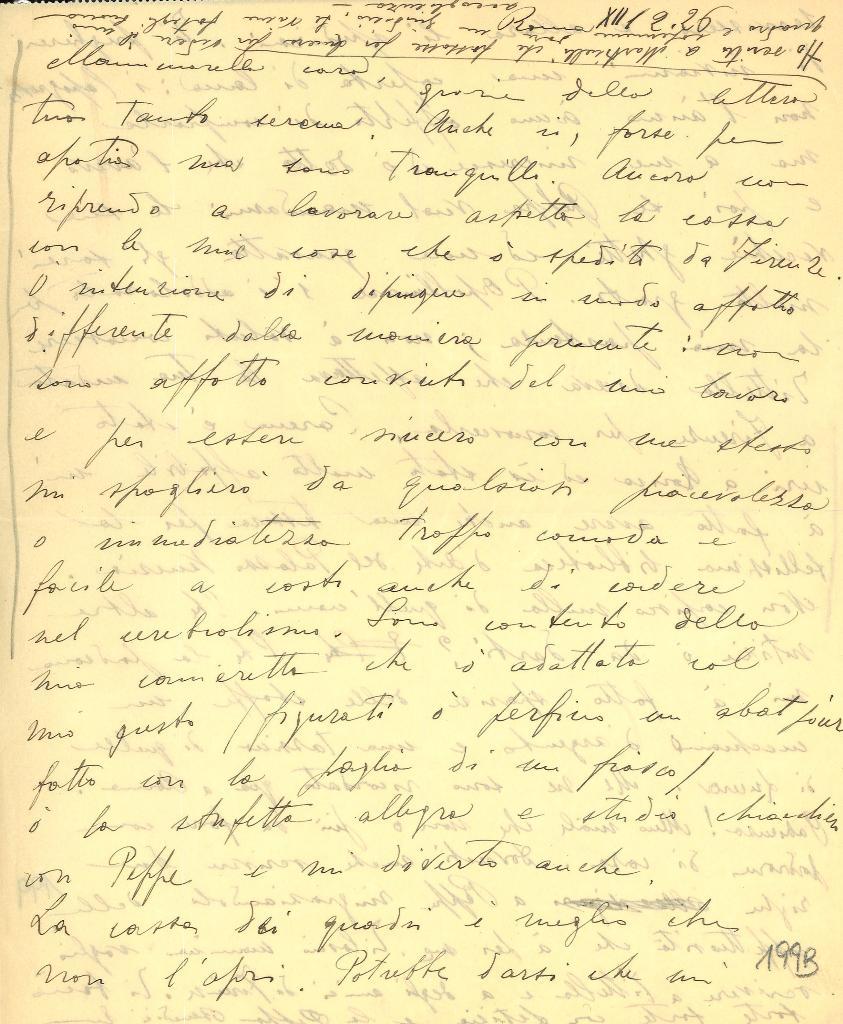 Ho scritto a Martinelli che passasse per
Mammarella cara,
grazie della lettera
tua tanto serena. Anche io, forse per
apatia ma sono tranquillo. Ancora non
riprendo a lavorare aspetto la cassa
con le mie cose che ò spedito da Firenze.
O intenzione di dipingere in modo affatto
differente dalla maniera presente: non
sono affatto convinto del mio lavoro
e per essere sincero con me stesso
mi spoglierò da qualsiasi piacevolezza
o immediatezza troppo comoda e
facile a costo anche di cadere
nel cerebralismo. Sono contento della
mia cameretta che ò adattata col
mio gusto (figurati ò perfino un abat jour
fatto con la paglia di un fiasco)
ò la stufetta allegra e studio chiacchiero
con Peppe e mi diverto anche.
La cassa dei quadri è meglio che
non l'apri. Potrebbe darsi che mi
199B